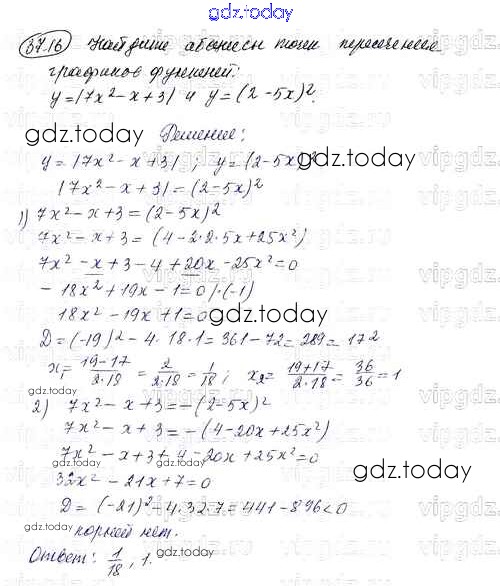 gdz.today
37.16 Найдите абсциссы точек пересечения
графиков функций:
y=|7x²-x+3| и y=(2-5x)².
gdz.today
Решение:
y=|7x²-x+3|; y=(2-5x)²
|7x²-x+3|=(2-5x)²
1) 7x²-x+3=(2-5x)²
7x²-x+3=(4-2·2·5x+25x²)
7x²-x+3-4+20x-25x²=0
-18x²+19x-1=0/·(-1)
18x²-19x+1=0
gdz.today
D=(-19)²-4·18·1=361-72=289=17²
x₁=(19-17)/(2·18)=2/(2·18)=1/18; x₂=(19+17)/(2·18)=36/36=1
gdz.today
2) 7x²-x+3=-(2-5x)²
7x²-x+3=-(4-20x+25x²)
7x²-x+3+4-20x+25x²=0
32x²-21x+7=0
gdz.today
D=(-21)²-4·32·7=441-896<0
корней нет.
gdz.today
Ответ: 1/18, 1.
gdz.today
vipgdz